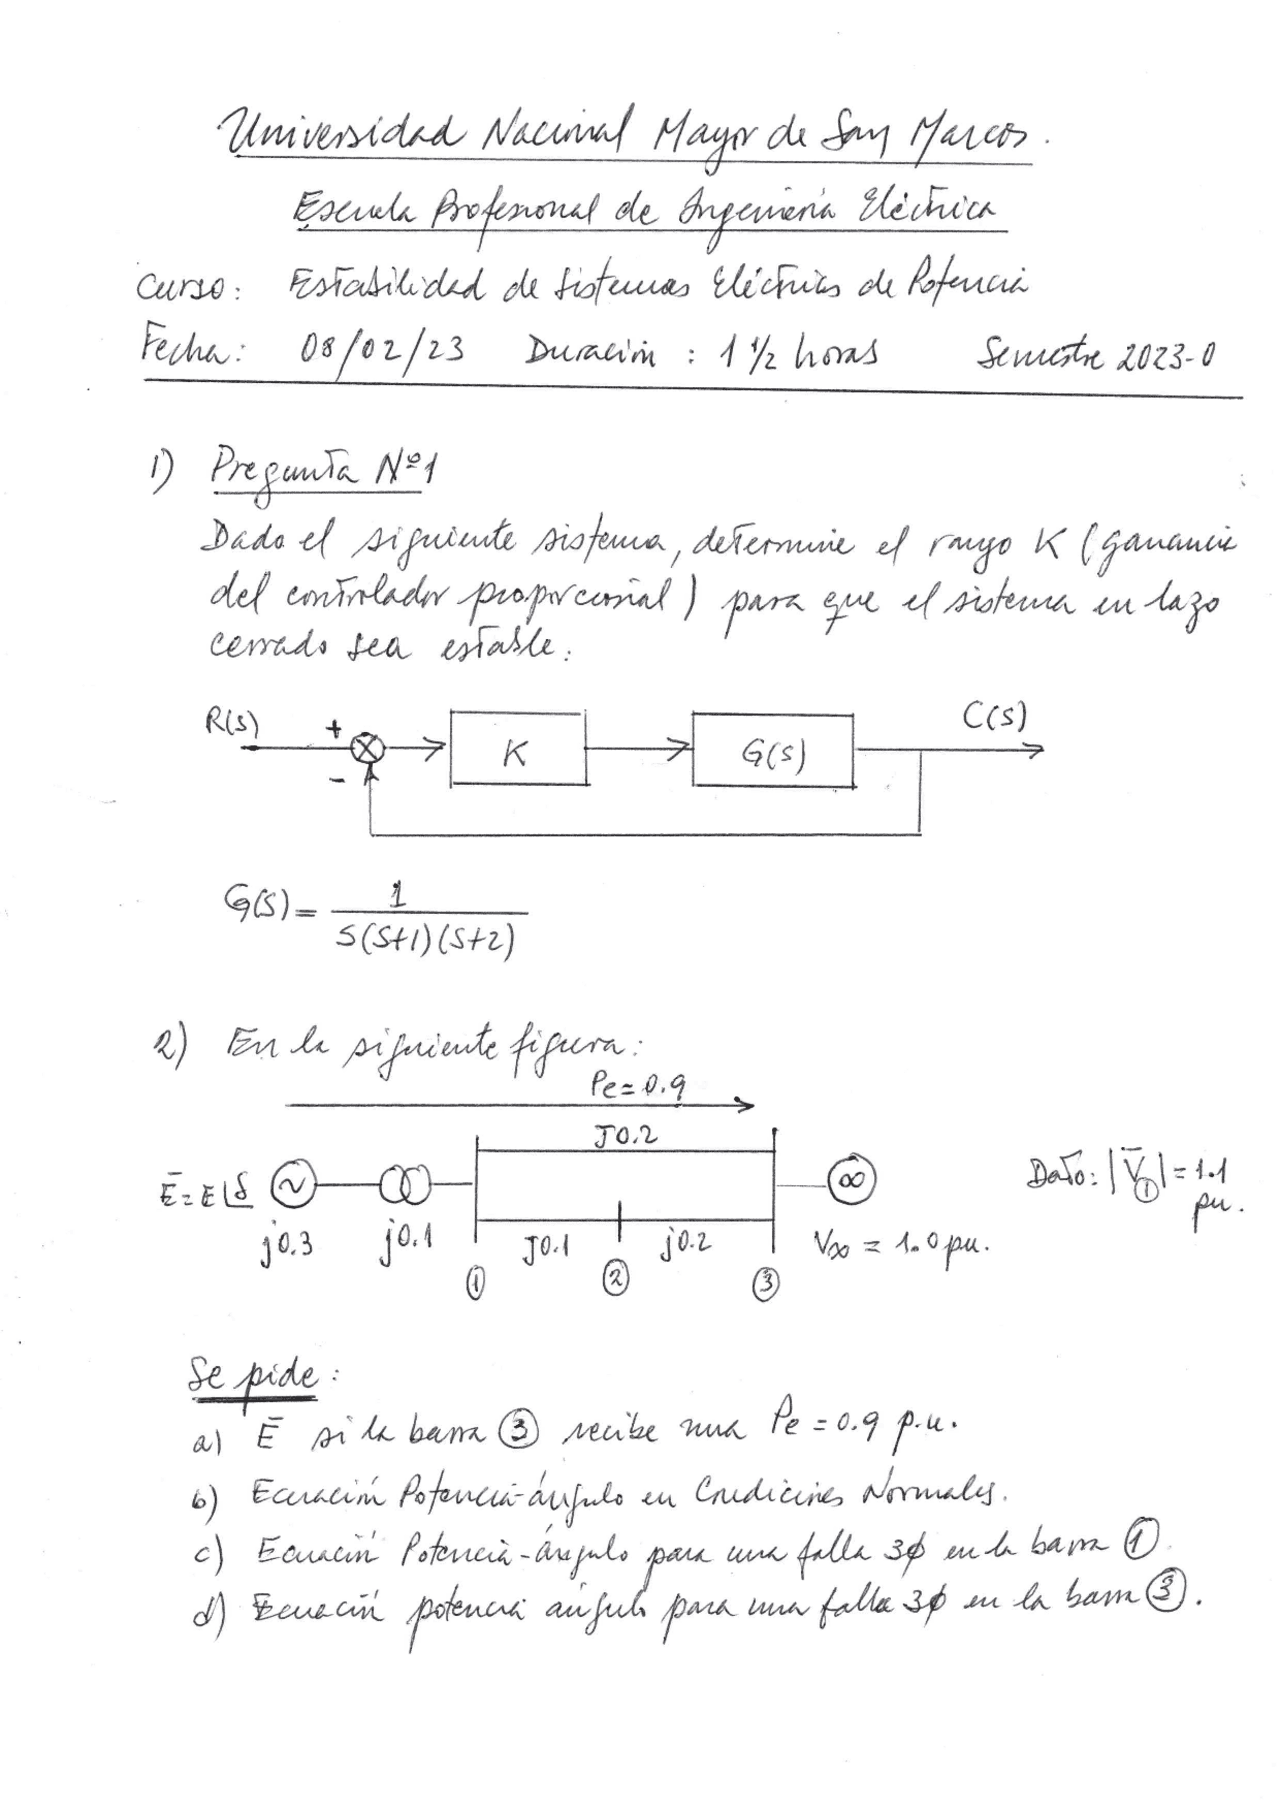 Universidad Nacional Mayor de San Marcos.
Escuela Profesional de Ingeniería Eléctrica
Curso: Estabilidad de Sistemas Eléctricos de Potencia
Fecha: 08/02/23 Duración: 1 1/2 horas Semestre 2023-0
1) Pregunta Nº1
Dado el siguiente sistema, determine el rango K (ganancia
del controlador proporcional) para que el sistema en lazo
cerrado sea estable:
R(s) + - K G(s) C(s)
G(s) = 1 / S(S+1)(S+2)
2) En la siguiente figura:
Pe=0.9
J0.2
Ē=E∠δ ~ ∞ Dato: |V̄①|=1.1
pu.
j0.3 j0.1 J0.1 j0.2 V∞ = 1.0 pu.
① ② ③
Se pide:
a) Ē si la barra ③ recibe una Pe = 0.9 p.u.
b) Ecuación Potencia-ángulo en Condiciones Normales.
c) Ecuación Potencia-ángulo para una falla 3ϕ en la barra ①.
d) Ecuación potencia ángulo para una falla 3ϕ en la barra ③.